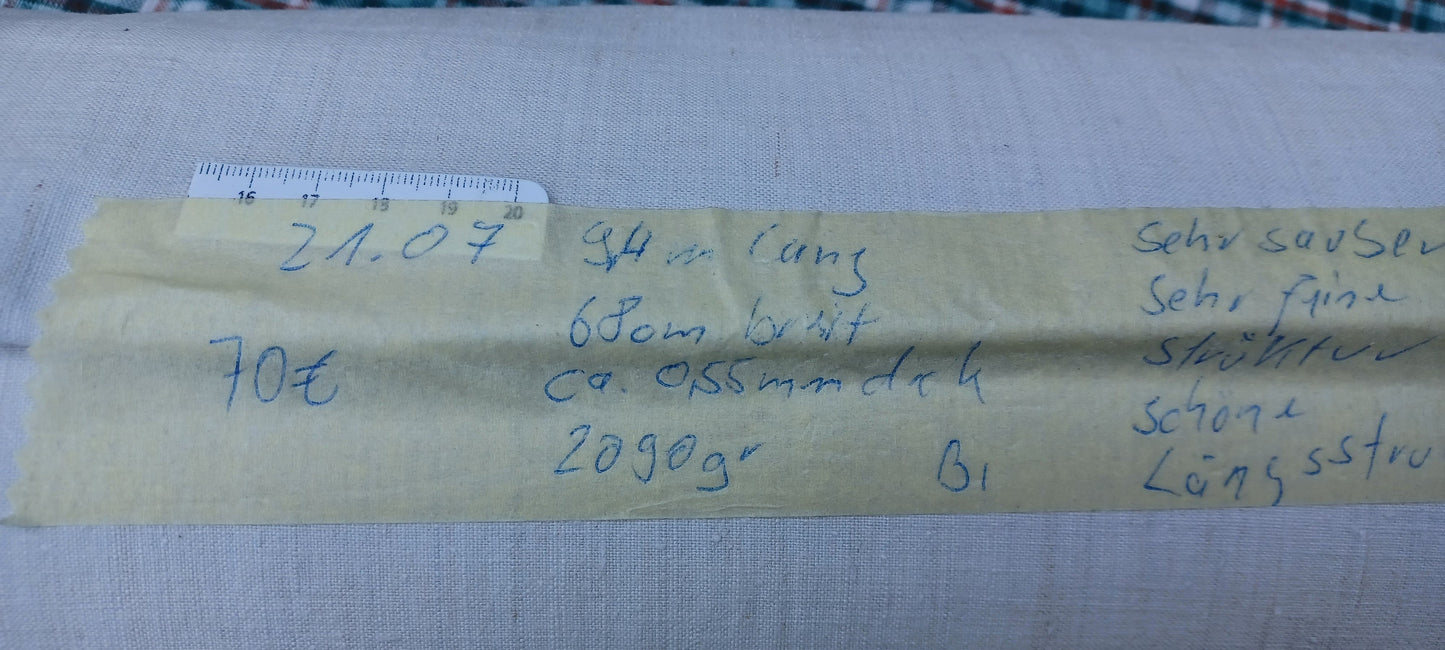 16 17 18 19 20
21.07
70€
9,4m lang
68cm breit
ca. 0,55mm dick
2090gr
B1
sehr sauber
sehr feine
struktur
schöne
Längsstru